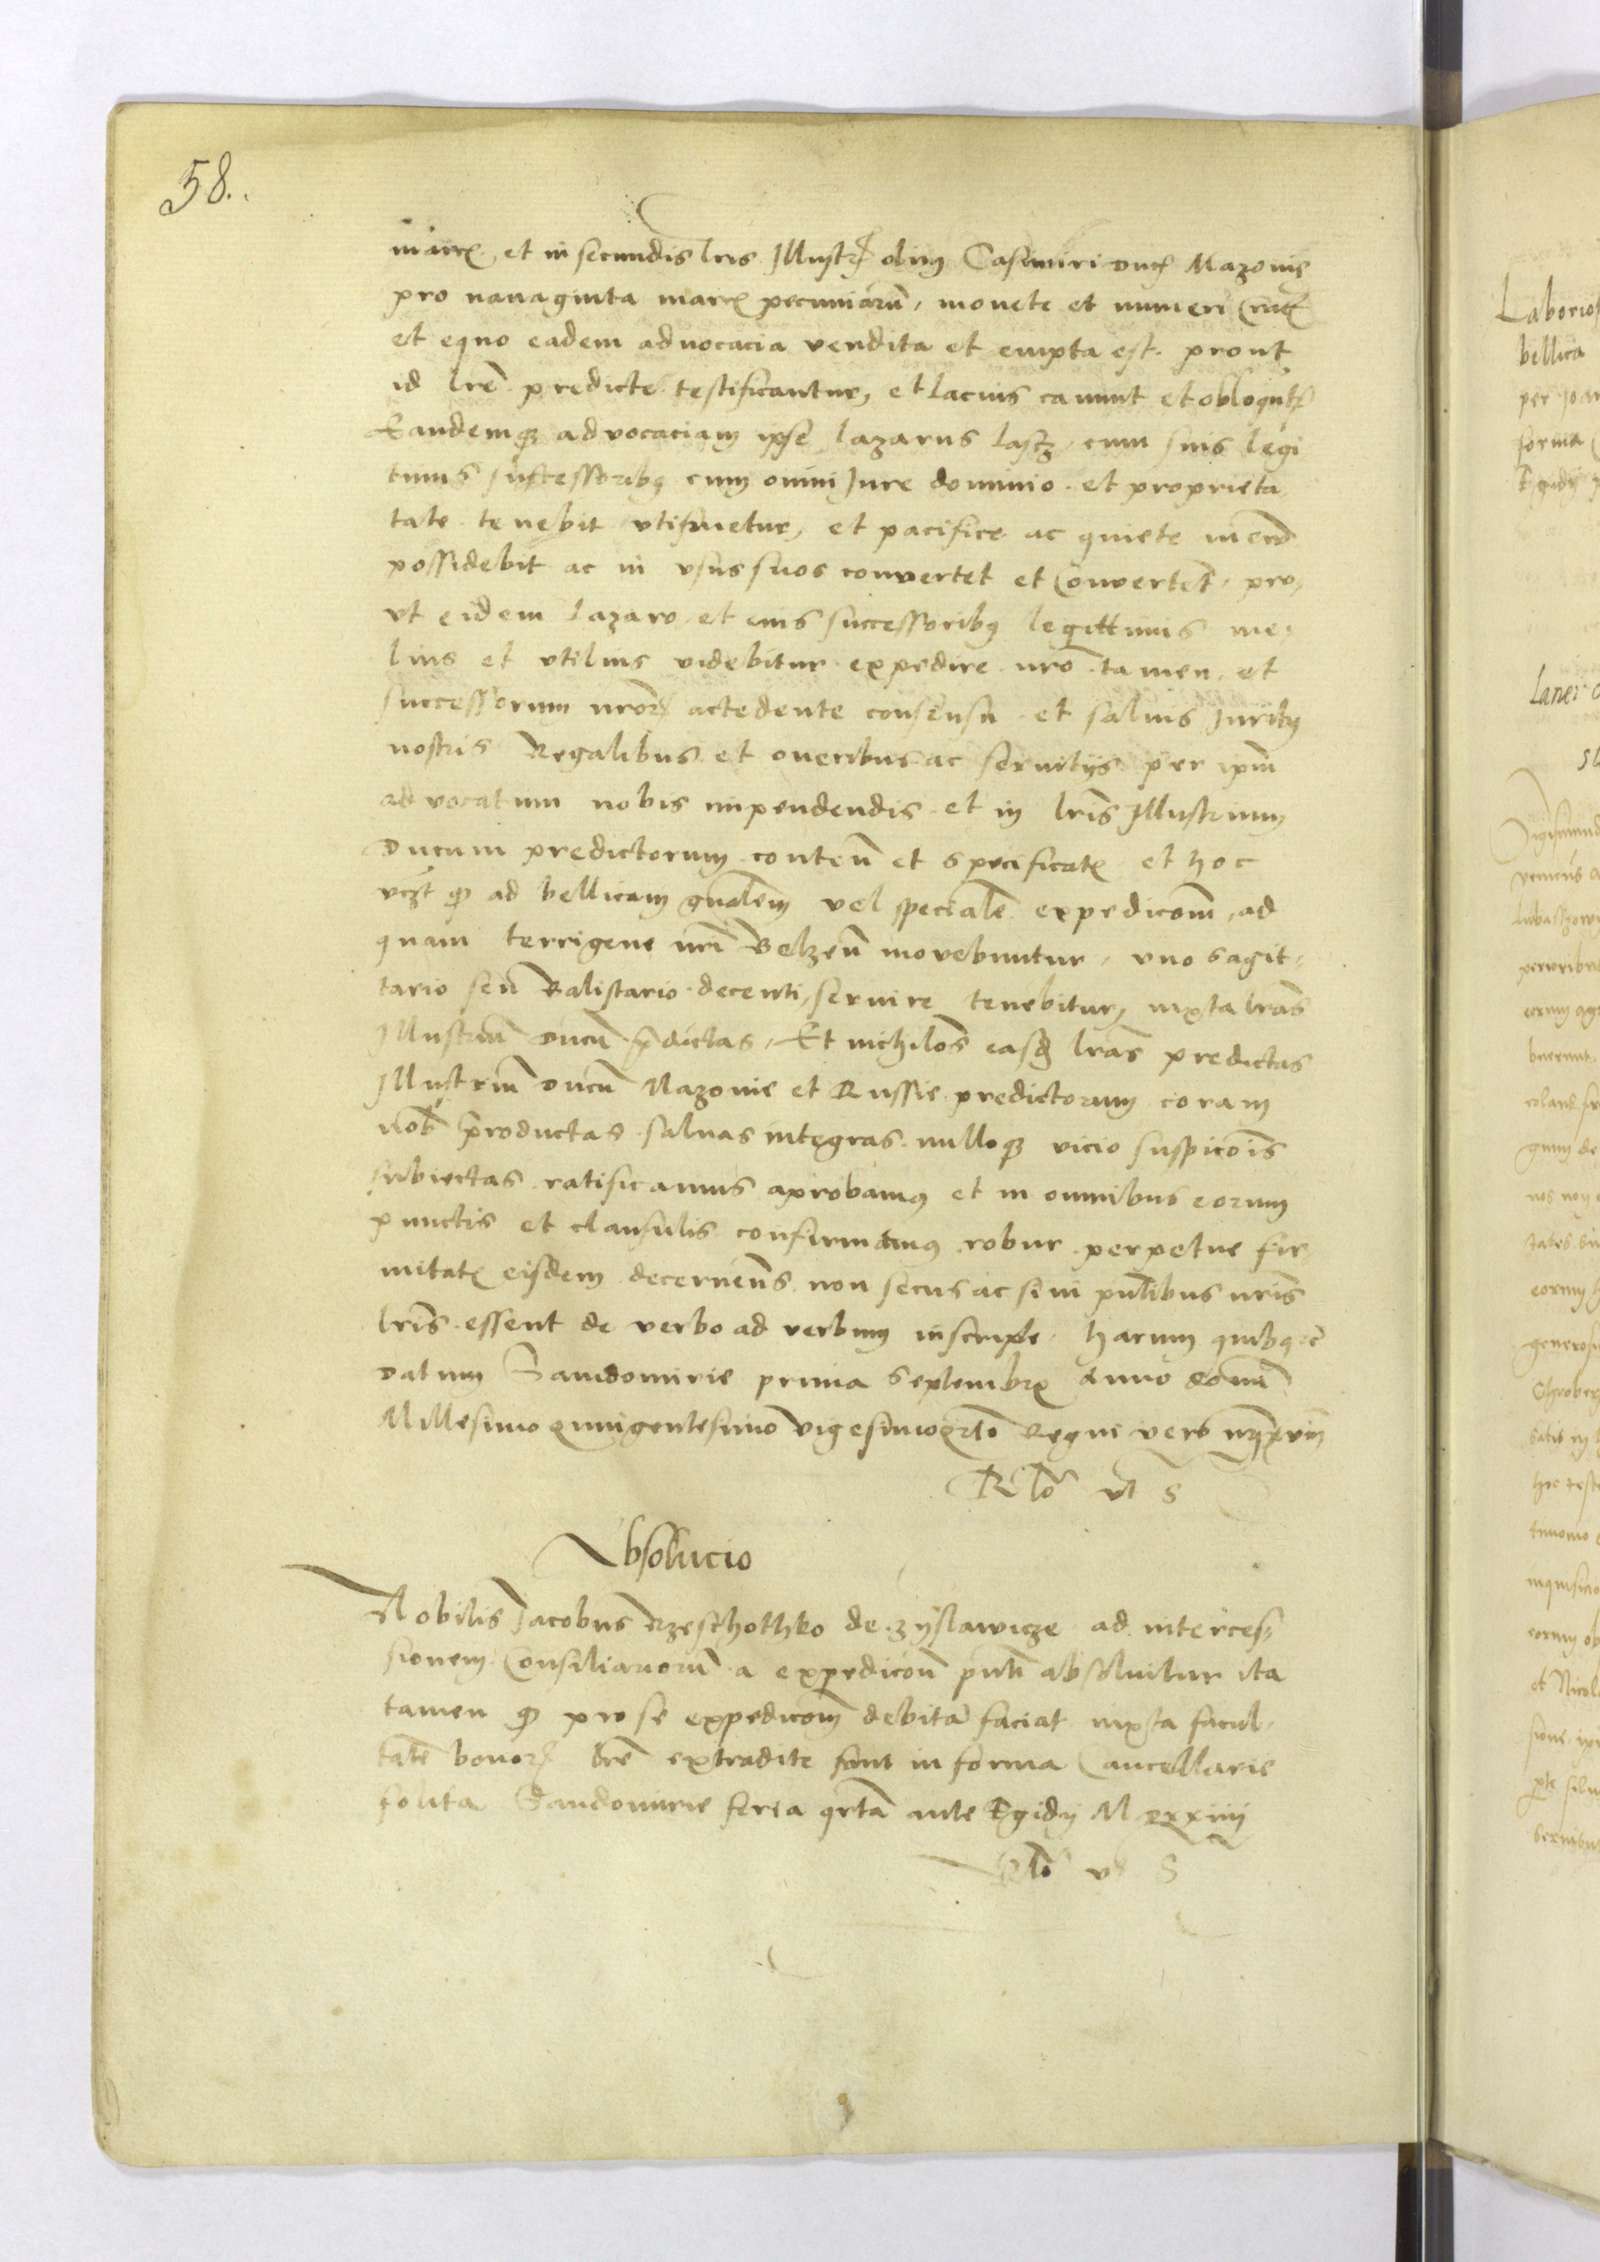 58.
marc et in secundis lris Illustr olim Casimiri duc Mazovie
pro nonaginta marc pecuniarum, monete et numeri
et equo eadem advocacia vendita et empta est. prout
id lre predicte testificantur, et lacius canunt et obloqutr
Eandemq advocaciam ipse Lazarus cum suis legi
timis successoribq cum omni Jure dominio et proprieta
tate tenebit utifruetur, et pacifice ac quiete in eadem
possidebit ac in usus suos convertet et Convertent, pro,
ut eidem Lazaro et eius successoribq legittimis me,
lius et utilius videbitur expedire nro tamen et
successorum nror accedente consensu et salvis Juribq
nostris Regalibus et oneribus ac servitijs per ipm
advocatum nobis impendendis et in lris Illustrium
Ducum predictorum conten et specificatis et hoc
vczt q ad bellicam gnalem vel speciale expedicom, ad
quam terrigene nri Belzen movebuntur, uno sagit,
tario seu Balistario decenti, servire tenebitur, iuxta lras
Illustrium ducu pdictas, Et nichilos easd lras predictas
Illustrium ducu Mazovie et Russie predictorum coram
nob productas salvas integras nulloq vicio suspicois
subiectas ratificamus aprobamq et in omnibus eorum
punctis et clausulis confirmamq robur perpetue fir
mitatis eisdem decernens non secus ac si in pntibus nris
lris essent de verbo ad verbum inscripte. harum quibq etc
datum Sandomirie prima Septembris Anno domi
Millesimo quingentesimo vigesimoqrto Regni vero nri xviii
Rlo ut S
Absolucio
Nobilis Jacobus Rzeschothko de Zyslawicze ad interces,
sionem Consiliariorum a expedicon pnti absolvitur ita
tamen q pro se expedicom debita faciat iuxta facul,
tate bonor lre extradite sunt in forma Cancellarie
solita Sandomirie feria qrta ante Egidij M
Rlo ut S